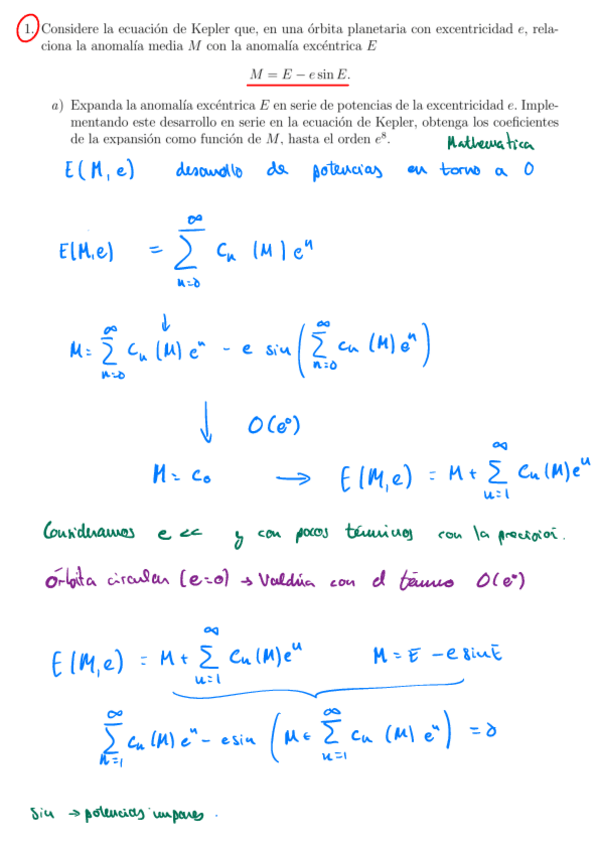 1. Considere la ecuación de Kepler que, en una órbita planetaria con excentricidad e, rela-
ciona la anomalía media M con la anomalía excéntrica E
M = E − e sin E.
a) Expanda la anomalía excéntrica E en serie de potencias de la excentricidad e. Imple-
mentando este desarrollo en serie en la ecuación de Kepler, obtenga los coeficientes
de la expansión como función de M, hasta el orden e⁸.
Mathematica
E(M,e) desarrollo de potencias en torno a 0
E(M,e) = ∑_{n=0}^{∞} Cn (M) eⁿ
↓
M = ∑_{n=0}^{∞} Cn (M) eⁿ − e sin (∑_{n=0}^{∞} Cn (M) eⁿ)
↓ O(e⁰)
M = C₀ → E(M,e) = M + ∑_{n=1}^{∞} Cn(M)eⁿ
Consideramos e << y con pocos términos con la precisión.
Órbita circular (e=0) → Valdría con el término O(e⁰)
E(M,e) = M + ∑_{n=1}^{∞} Cn(M)eⁿ M = E − e sin E
∑_{n=1}^{∞} Cn (M) eⁿ − e sin (M + ∑_{n=1}^{∞} Cn (M) eⁿ) = 0
Sin → potencias impares.